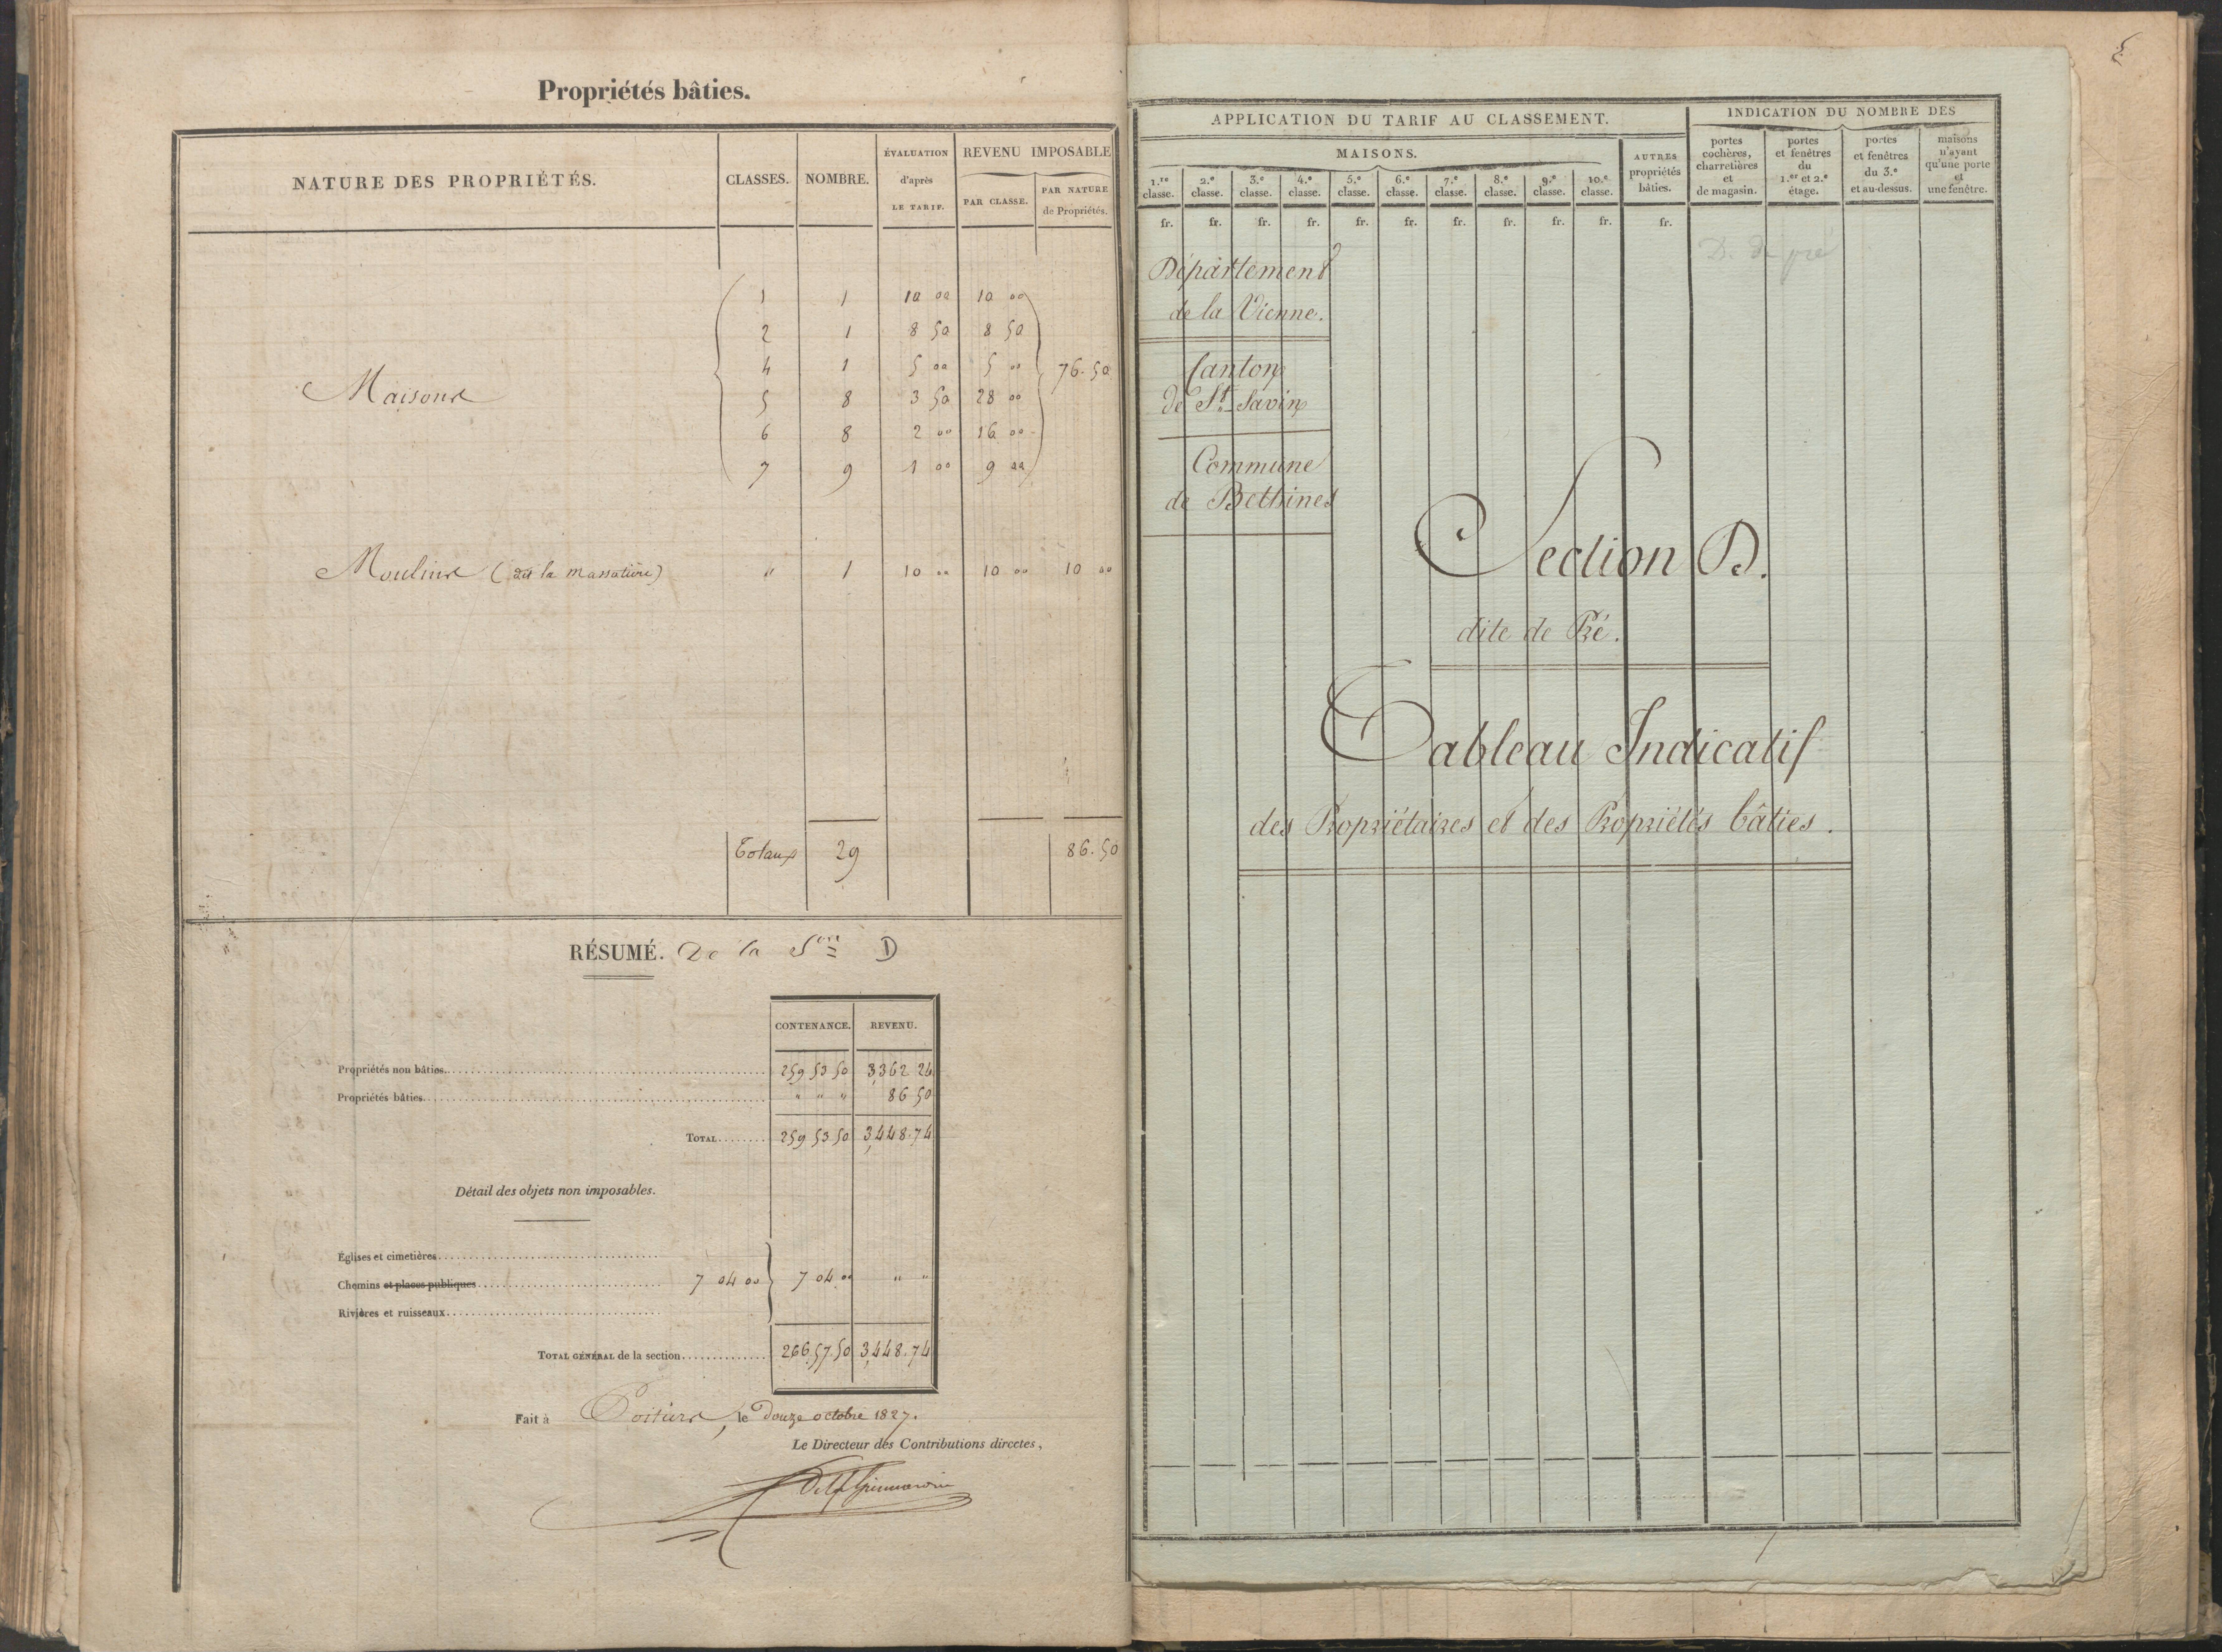 Propriétés bâties.
NATURE DES PROPRIÉTÉS. CLASSES. NOMBRE. ÉVALUATION d'après LE TARIF. REVENU IMPOSABLE PAR CLASSE. PAR NATURE de Propriétés.
1 1 10 00 10 00
2 1 8 50 8 50
4 1 5 00 5 00 76.50
Maisons 5 8 3 50 28 00
6 8 2 00 16 00
7 9 1 00 9 00
Moulins (dit la massatière) " 1 10 00 10 00 10 00
Totaux 29 86.50
RÉSUMÉ. De la Son D
CONTENANCE. REVENU.
Propriétés non bâties 259 53 50 3,362 24
Propriétés bâties " " " 86 50
TOTAL 259 53 50 3,448.74
Détail des objets non imposables.
Églises et cimetières
Chemins et places publiques 7 04 00 7 04 00 " "
Rivières et ruisseaux
TOTAL GÉNÉRAL de la section 266.57.50 3,448.74
Fait à Poitiers, le Douze octobre 1827.
Le Directeur des Contributions directes,
APPLICATION DU TARIF AU CLASSEMENT.
INDICATION DU NOMBRE DES
MAISONS.
1.re classe. 2.e classe. 3.e classe. 4.e classe. 5.e classe. 6.e classe. 7.e classe. 8.e classe. 9.e classe. 10.e classe.
AUTRES propriétés bâties.
portes cochères, charretières et de magasin.
portes et fenêtres du 1.er et 2.e étage.
portes et fenêtres du 3.e et au-dessus.
maisons n'ayant qu'une porte et une fenêtre.
fr. fr. fr. fr. fr. fr. fr. fr. fr. fr. fr.
D. de pré
Département
de la Vienne.
Canton
de St. Savin
Commune
de Bethines
Section D.
dite de Pré.
Tableau Indicatif
des Propriétaires et des Propriétés bâties.